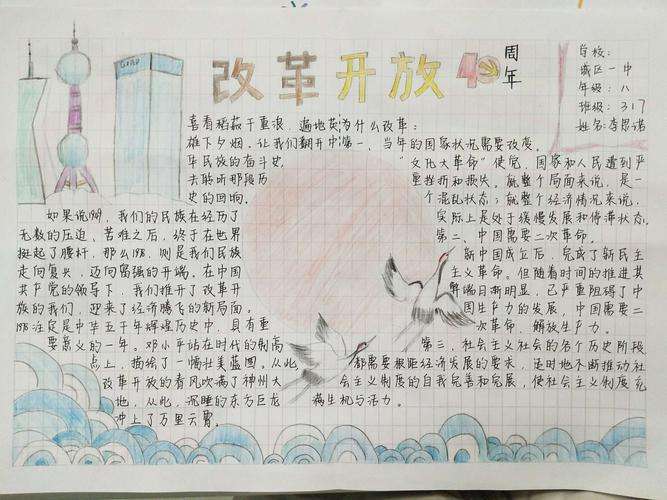 改革开放40周年
学校:
城区一中
年级:八
班级:317
姓名:李思诺
喜看稻菽千重浪,遍地英
雄下夕烟。让我们翻开中
华民族的奋斗史,
去聆听那段历
史的回响。
如果说1949,我们的民族在经历了
无数的压迫、苦难之后,终于在世界
挺起了腰杆,那么1978,则是我们民族
走向复兴,迈向富强的开端。在中国
共产党的领导下,我们推开了改革开
放的我们,迎来了经济腾飞的新局面。
1978注定是中华五千年辉煌历史中,具有重
要意义的一年。邓小平站在时代的制高
点上,描绘了一幅壮美蓝图。从此,
改革开放的春风吹满了神州大
地,从此,沉睡的东方巨龙
冲上了万里云霄。
为什么改革:
一、当年的国家状况需要改变。
"文化大革命"使党,国家和人民遭到严
重挫折和损失。就整个局面来说,是一
个混乱状态;就整个经济情况来说,
实际上是处于缓慢发展和停滞状态。
第二、中国需要二次革命。
新中国成立后,完成了新民主
主义革命。但随着时间的推进其
弊端日渐明显,已严重阻碍了中
国生产力的发展,中国需要二
次革命,解放生产力。
第三、社会主义社会的各个历史阶段
都需要根距经济发展的要求,适时地不断推动社
会主义制度的自我完善和发展,使社会主义制度充
满生机与活力。